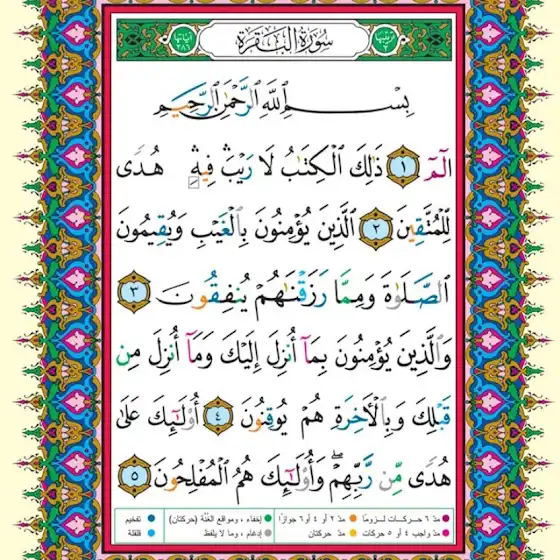 ترتيبها ٢
سُورَةُ الْبَقَرَة
آياتها ٢٨٦
بِسْمِ ٱللَّهِ ٱلرَّحْمَٰنِ ٱلرَّحِيمِ
الٓمٓ ١ ذَٰلِكَ ٱلْكِتَٰبُ لَا رَيْبَ ۛ فِيهِ ۛ هُدًى
لِّلْمُتَّقِينَ ٢ ٱلَّذِينَ يُؤْمِنُونَ بِٱلْغَيْبِ وَيُقِيمُونَ
ٱلصَّلَوٰةَ وَمِمَّا رَزَقْنَٰهُمْ يُنفِقُونَ ٣
وَٱلَّذِينَ يُؤْمِنُونَ بِمَآ أُنزِلَ إِلَيْكَ وَمَآ أُنزِلَ مِن
قَبْلِكَ وَبِٱلْءَاخِرَةِ هُمْ يُوقِنُونَ ٤ أُو۟لَٰٓئِكَ عَلَىٰ
هُدًى مِّن رَّبِّهِمْ ۖ وَأُو۟لَٰٓئِكَ هُمُ ٱلْمُفْلِحُونَ ٥
مدّ ٦ حركات لزومًا مدّ ٢ أو ٤ أو ٦ جوازًا إخفاء، ومواقع الغُنَّة (حركتان) تفخيم
مدّ واجب ٤ أو ٥ حركات مدّ حركتان إدغام، وما لا يلفظ قلقلة